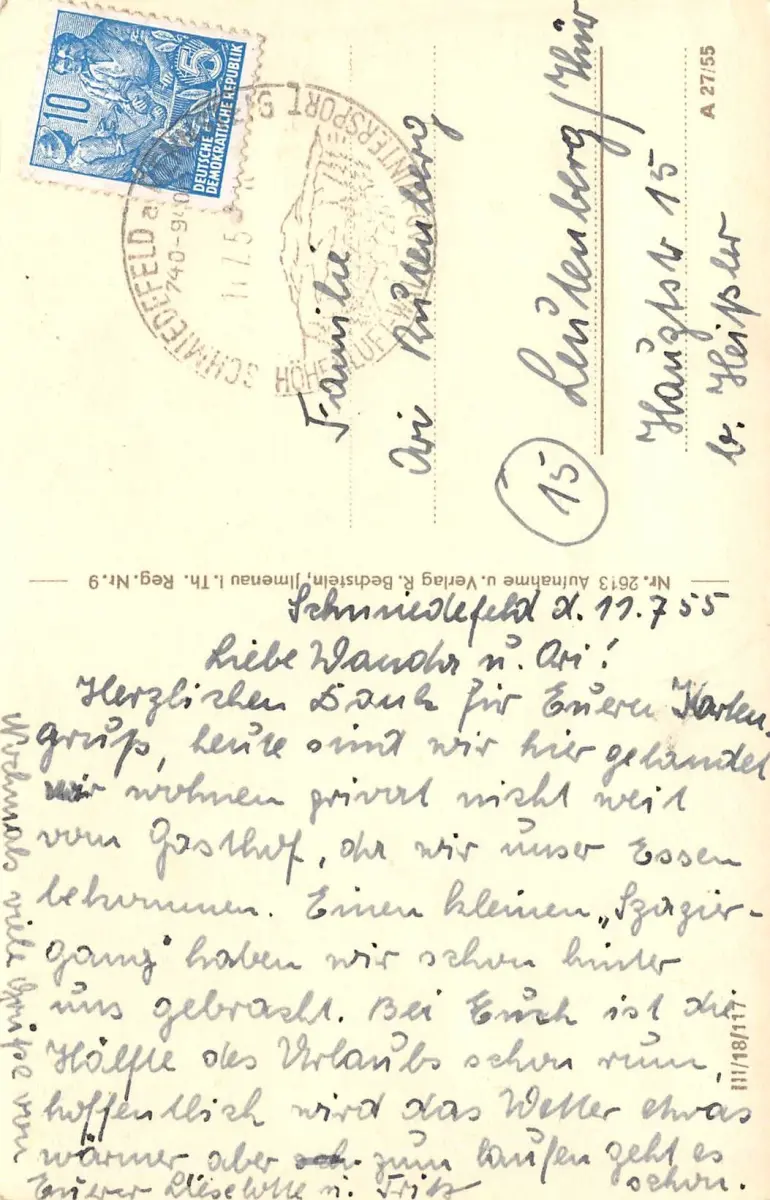 10
5
DEUTSCHE
DEMOKRATISCHE REPUBLIK
SCHMIEDEFELD a.
740-940
11.7.5
WINTERSPORT
Familie
Ari Rutenberg
(15) Leutenberg/Thür
Hauptstr 15
b. Heißler
A 27/55
Nr. 2613 Aufnahme u. Verlag R. Bechstein, Jlmenau i. Th. Reg. Nr. 9
Schmiedefeld d. 11.7.55
Liebe Wanda u. Ari!
Herzlichen Dank für Euern Karten-
gruß, heute sind wir hier gelandet
wir wohnen privat nicht weit
vom Gasthof, da wir unser Essen
bekommen. Einen kleinen „Spazier-
gang" haben wir schon hinter
uns gebracht. Bei Euch ist die
Hälfte des Urlaubs schon rum,
hoffentlich wird das Wetter etwas
wärmer aber zum laufen geht es
schon.
Nochmals viele Grüße von
Eurer Lieselotte u. Fritz
III/18/117